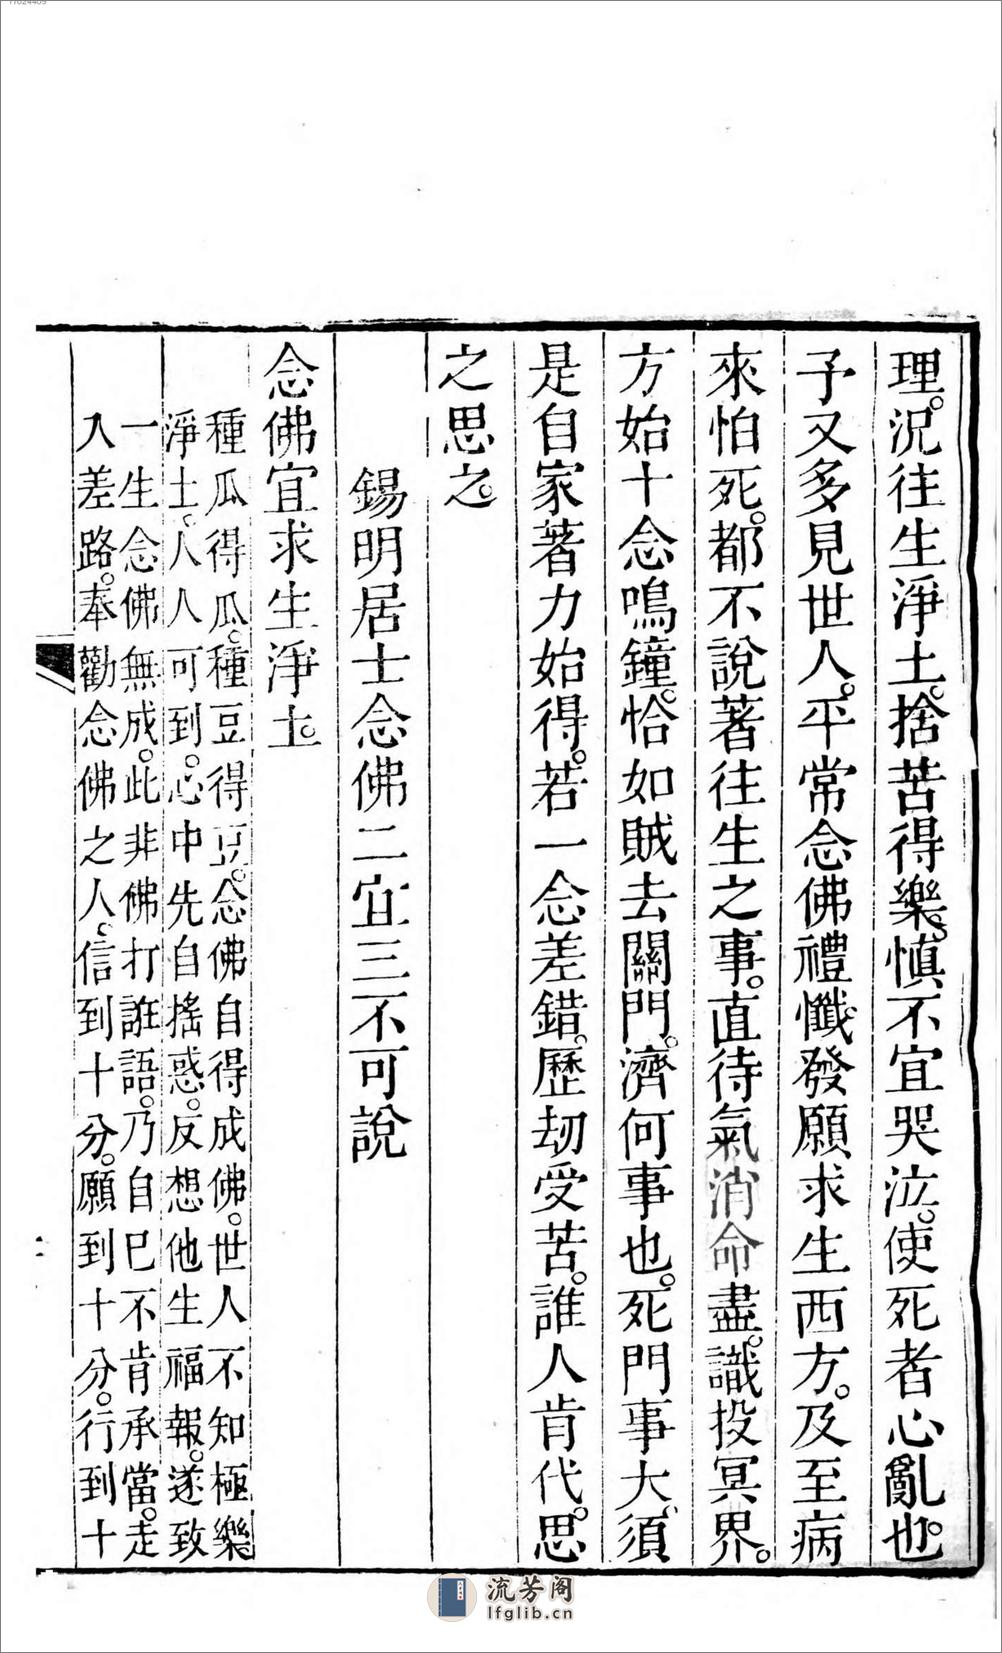 理。況往生淨土。捨苦得樂。慎不宜哭泣。使死者心亂也。
予又多見世人。平常念佛禮懺。發願求生西方。及至病
來怕死。都不說著往生之事。直待氣消命盡。識投冥界。
方始十念鳴鐘。恰如賊去關門。濟何事也。死門事大。須
是自家著力始得。若一念差錯。歷劫受苦。誰人肯代。思
之思之。
錫明居士念佛二宜三不可說
念佛宜求生淨土。
種瓜得瓜。種豆得豆。念佛自得成佛。世人不知極樂
淨土。人人可到。心中先自搖惑。反想他生福報。遂致
一生念佛無成。此非佛打誑語。乃自巳不肯承當。走
入差路。奉勸念佛之人。信到十分。願到十分。行到十
流芳阁
lfglib.cn